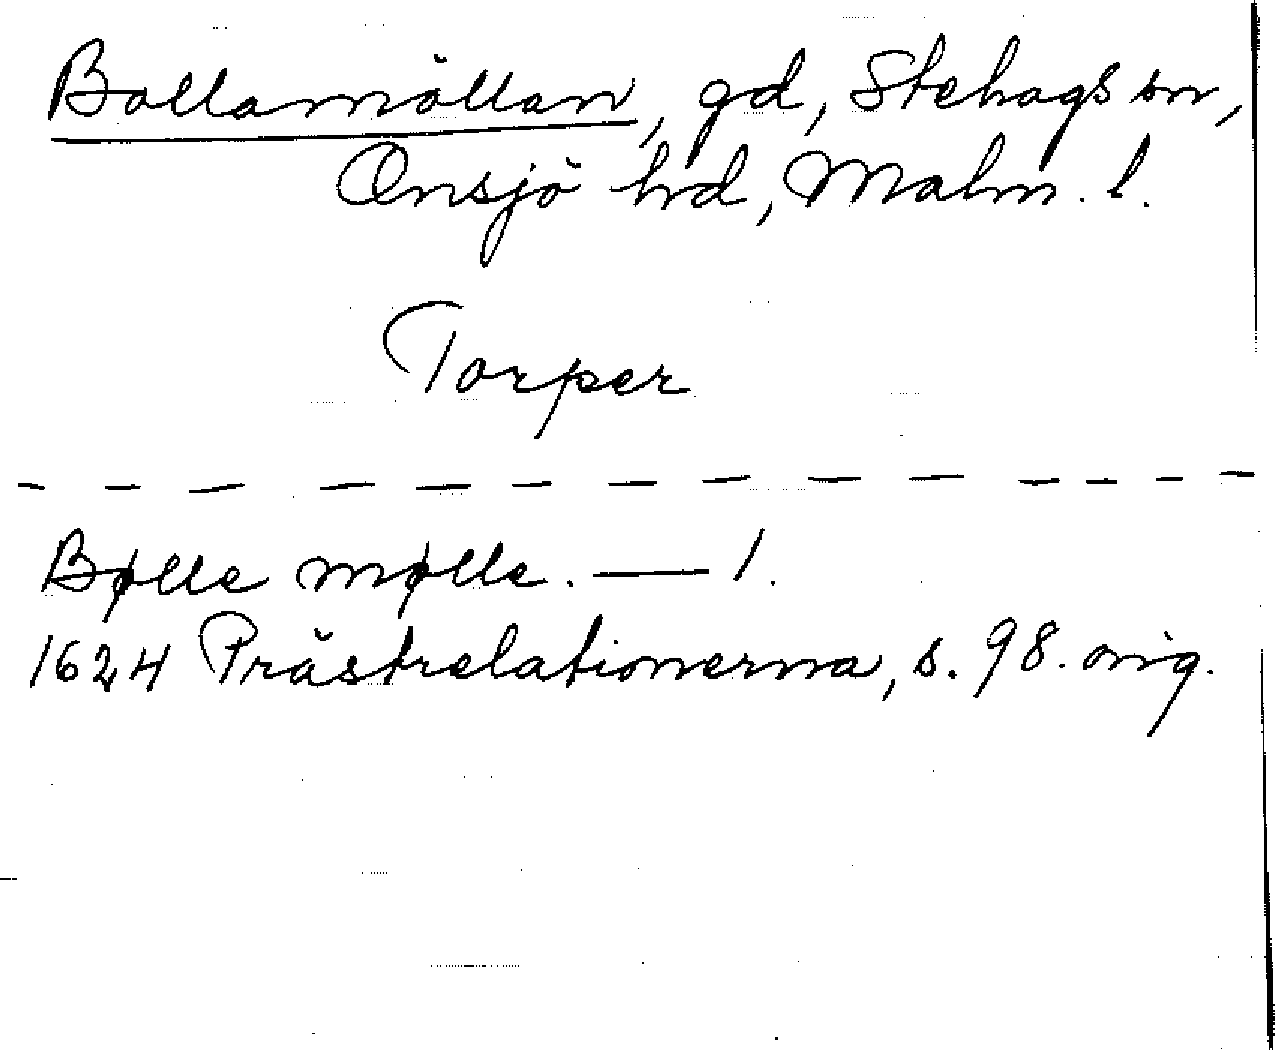 Bollamöllan, gd, Stehags sn,
Onsjö hd, Malm. l.
Torper
Bølle mølle. — 1.
1624 Prästrelationerna, s. 98. orig.